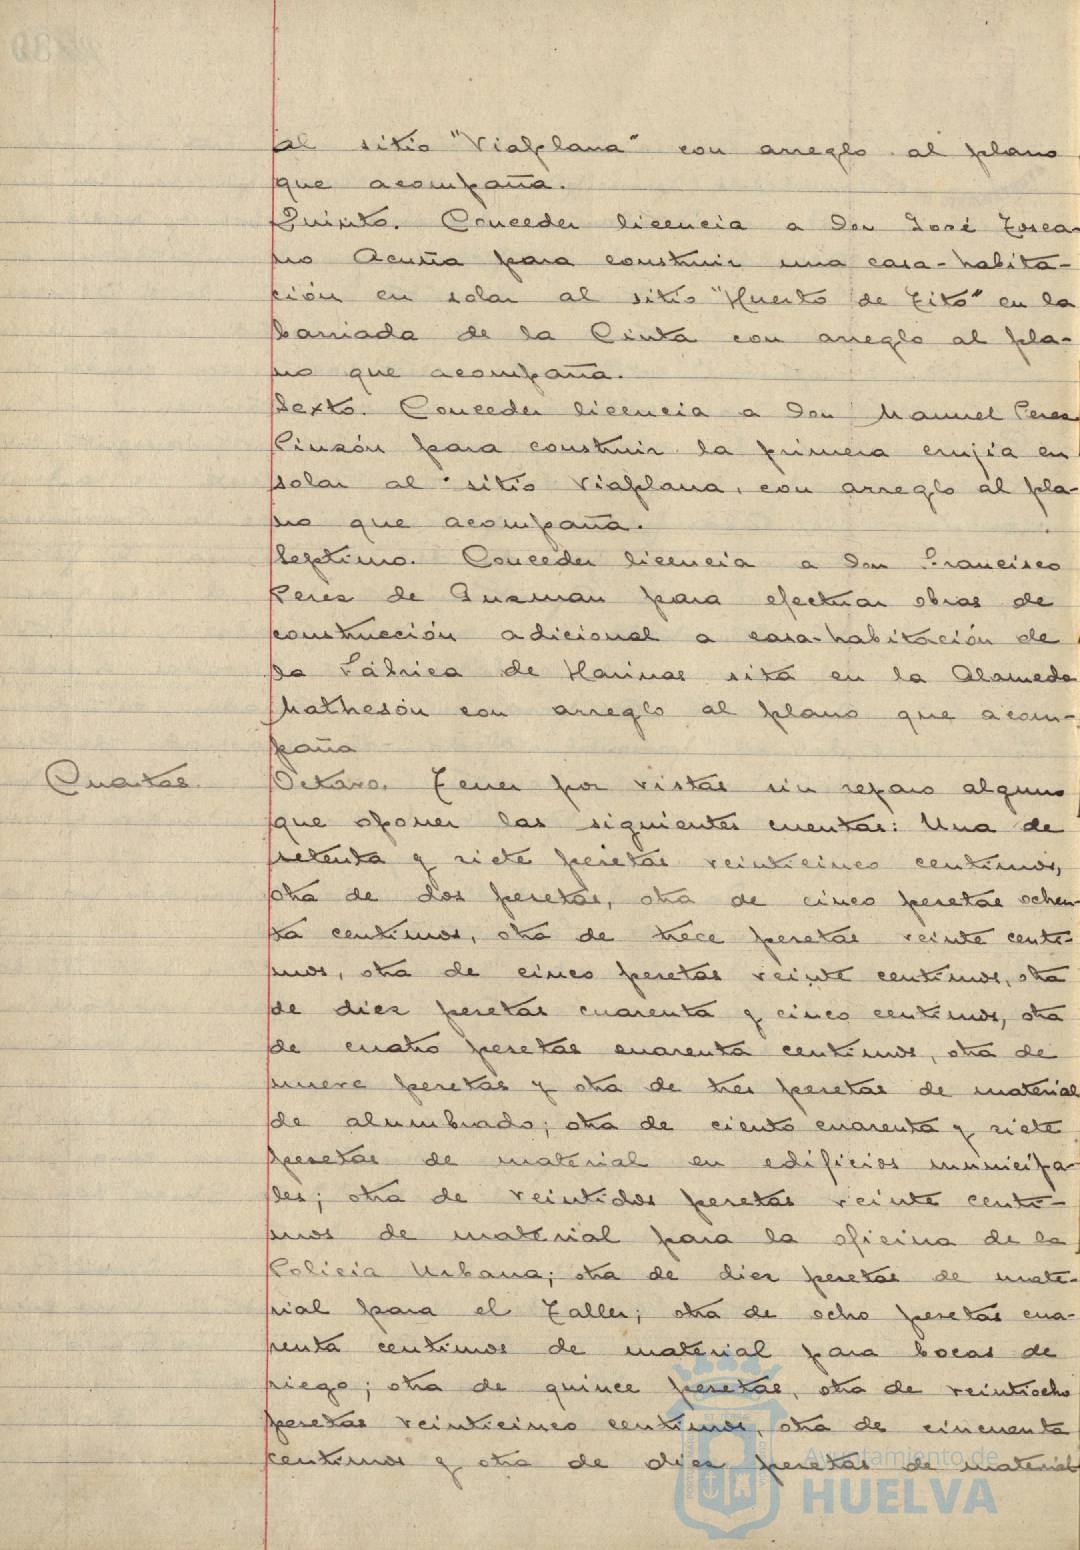 al sitio "Vialplana" con arreglo al plano
que acompaña.
Quinto. Conceder licencia a don José Tosca-
no Acuña para construir una casa-habita-
ción en solar al sitio "Huerto de Tito" en la
barriada de la Cinta con arreglo al pla-
no que acompaña.
Sexto. Conceder licencia a don Manuel Perez
Pinzón para construir la primera crujía en
solar al sitio Viaplana, con arreglo al pla-
no que acompaña.
Septimo. Conceder licencia a don Francisco
Perez de Guzman para efectuar obras de
construcción adicional a casa-habitación de
la Fábrica de Harinas sita en la Alameda
Mathesón con arreglo al plano que acom-
paña
Cuentas.
Octavo. Tener por vistas sin reparo alguno
que oponer las siguientes cuentas: Una de
setenta y siete pesetas veinticinco centimos,
otra de dos pesetas, otra de cinco pesetas ochen-
ta centimos, otra de trece pesetas veinte centi-
mos, otra de cinco pesetas veinte centimos, otra
de diez pesetas cuarenta y cinco centimos, otra
de cuatro pesetas cuarenta centimos, otra de
nueve pesetas y otra de tres pesetas de material
de alumbrado; otra de ciento cuarenta y siete
pesetas de material en edificios municipa-
les; otra de veintidos pesetas veinte centi-
mos de material para la oficina de la
Policia Urbana; otra de diez pesetas de mate-
rial para el Taller; otra de ocho pesetas cua-
renta centimos de material para bocas de
riego; otra de quince pesetas, otra de veintiocho
pesetas veinticinco centimos, otra de cincuenta
centimos y otra de diez pesetas de material
Ayuntamiento de
HUELVA